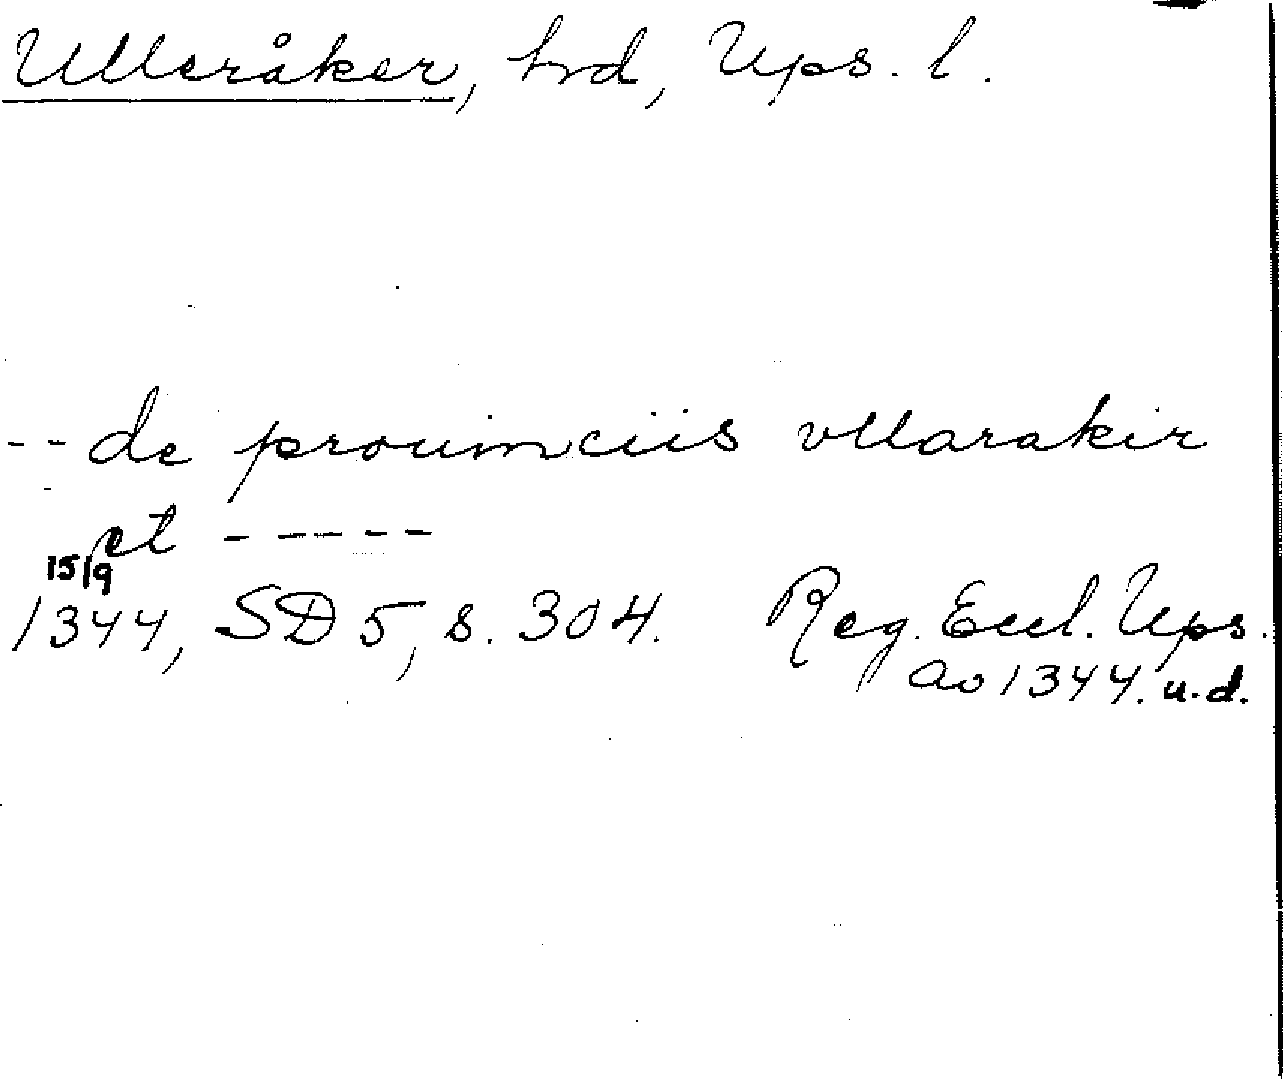 Ulleråker, hrd, Ups. l.
-- de prouinciis vllarakir
et -----
15/9
1344, SD 5, s. 304. Reg. Eccl. Ups.
ao 1344. u.d.